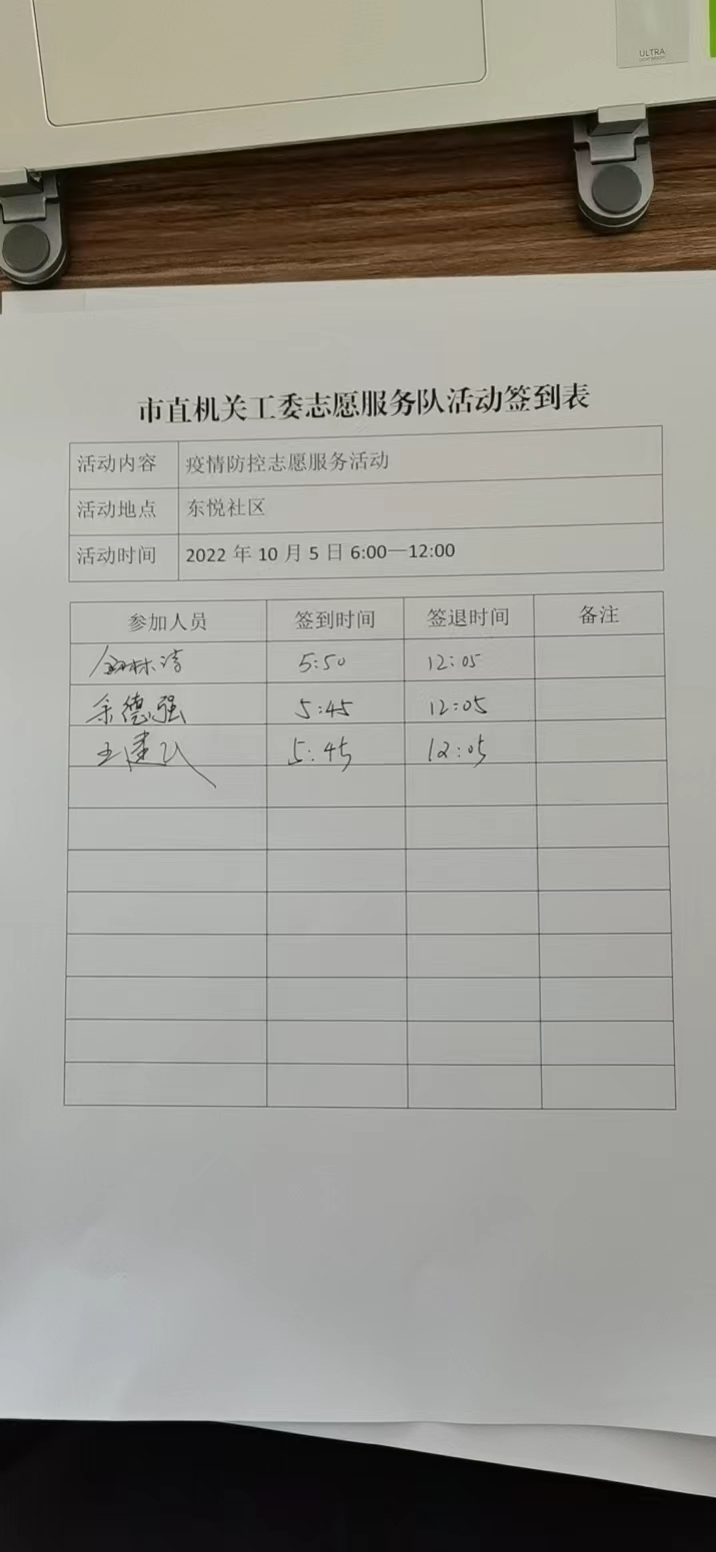 ULTRA
市直机关工委志愿服务队活动签到表
活动内容 疫情防控志愿服务活动
活动地点 东悦社区
活动时间 2022 年 10 月 5 日 6:00—12:00
参加人员 签到时间 签退时间 备注
5:50 12:05
余德强 5:45 12:05
王建 5:45 12:05